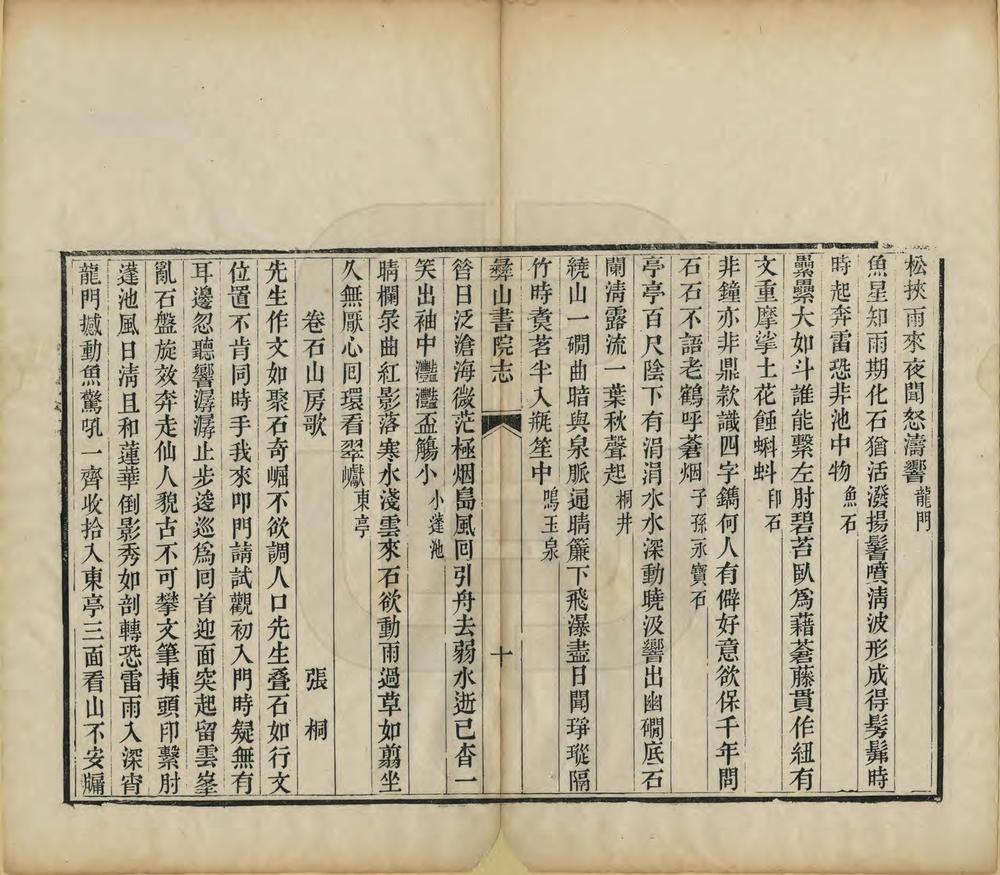 松挾雨來夜聞怒濤響龍門
魚星知雨期化石猶活潑揚鬐噴淸波形成得髣髴時
時起奔雷恐非池中物魚石
纍纍大如斗誰能繫左肘碧苔臥爲藉蒼藤貫作紐有
文重摩挲土花蝕蝌蚪印石
非鐘亦非鼎款識四字鐫何人有僻好意欲保千年問
石石不語老鶴呼蒼烟子孫永寶石
亭亭百尺陰下有涓涓水水深動曉汲響出幽磵底石
闌淸露流一葉秋聲起桐井
繞山一磵曲暗與泉脈通晴簾下飛瀑盡日聞琤瑽隔
竹時煑茗半入瓶笙中鳴玉泉
彝山書院志
十
昝日泛滄海微茫極烟島風囘引舟去弱水逝已杳一
笑出袖中灩灩盃觴小小蓬池
晴欄彔曲紅影落寒水淺雲來石欲動雨過草如翦坐
久無厭心囘環看翠巘東亭
卷石山房歌
張桐
先生作文如聚石奇崛不欲調人口先生叠石如行文
位置不肯同時手我來叩門請試觀初入門時疑無有
耳邊忽聽響潺潺止步逡巡爲囘首迎面突起留雲峯
亂石盤旋效奔走仙人貌古不可攀文筆揷頭印繫肘
蓬池風日淸且和蓮華倒影秀如剖轉恐雷雨入深宵
龍門撼動魚驚吼一齊收拾入東亭三面看山不安牖